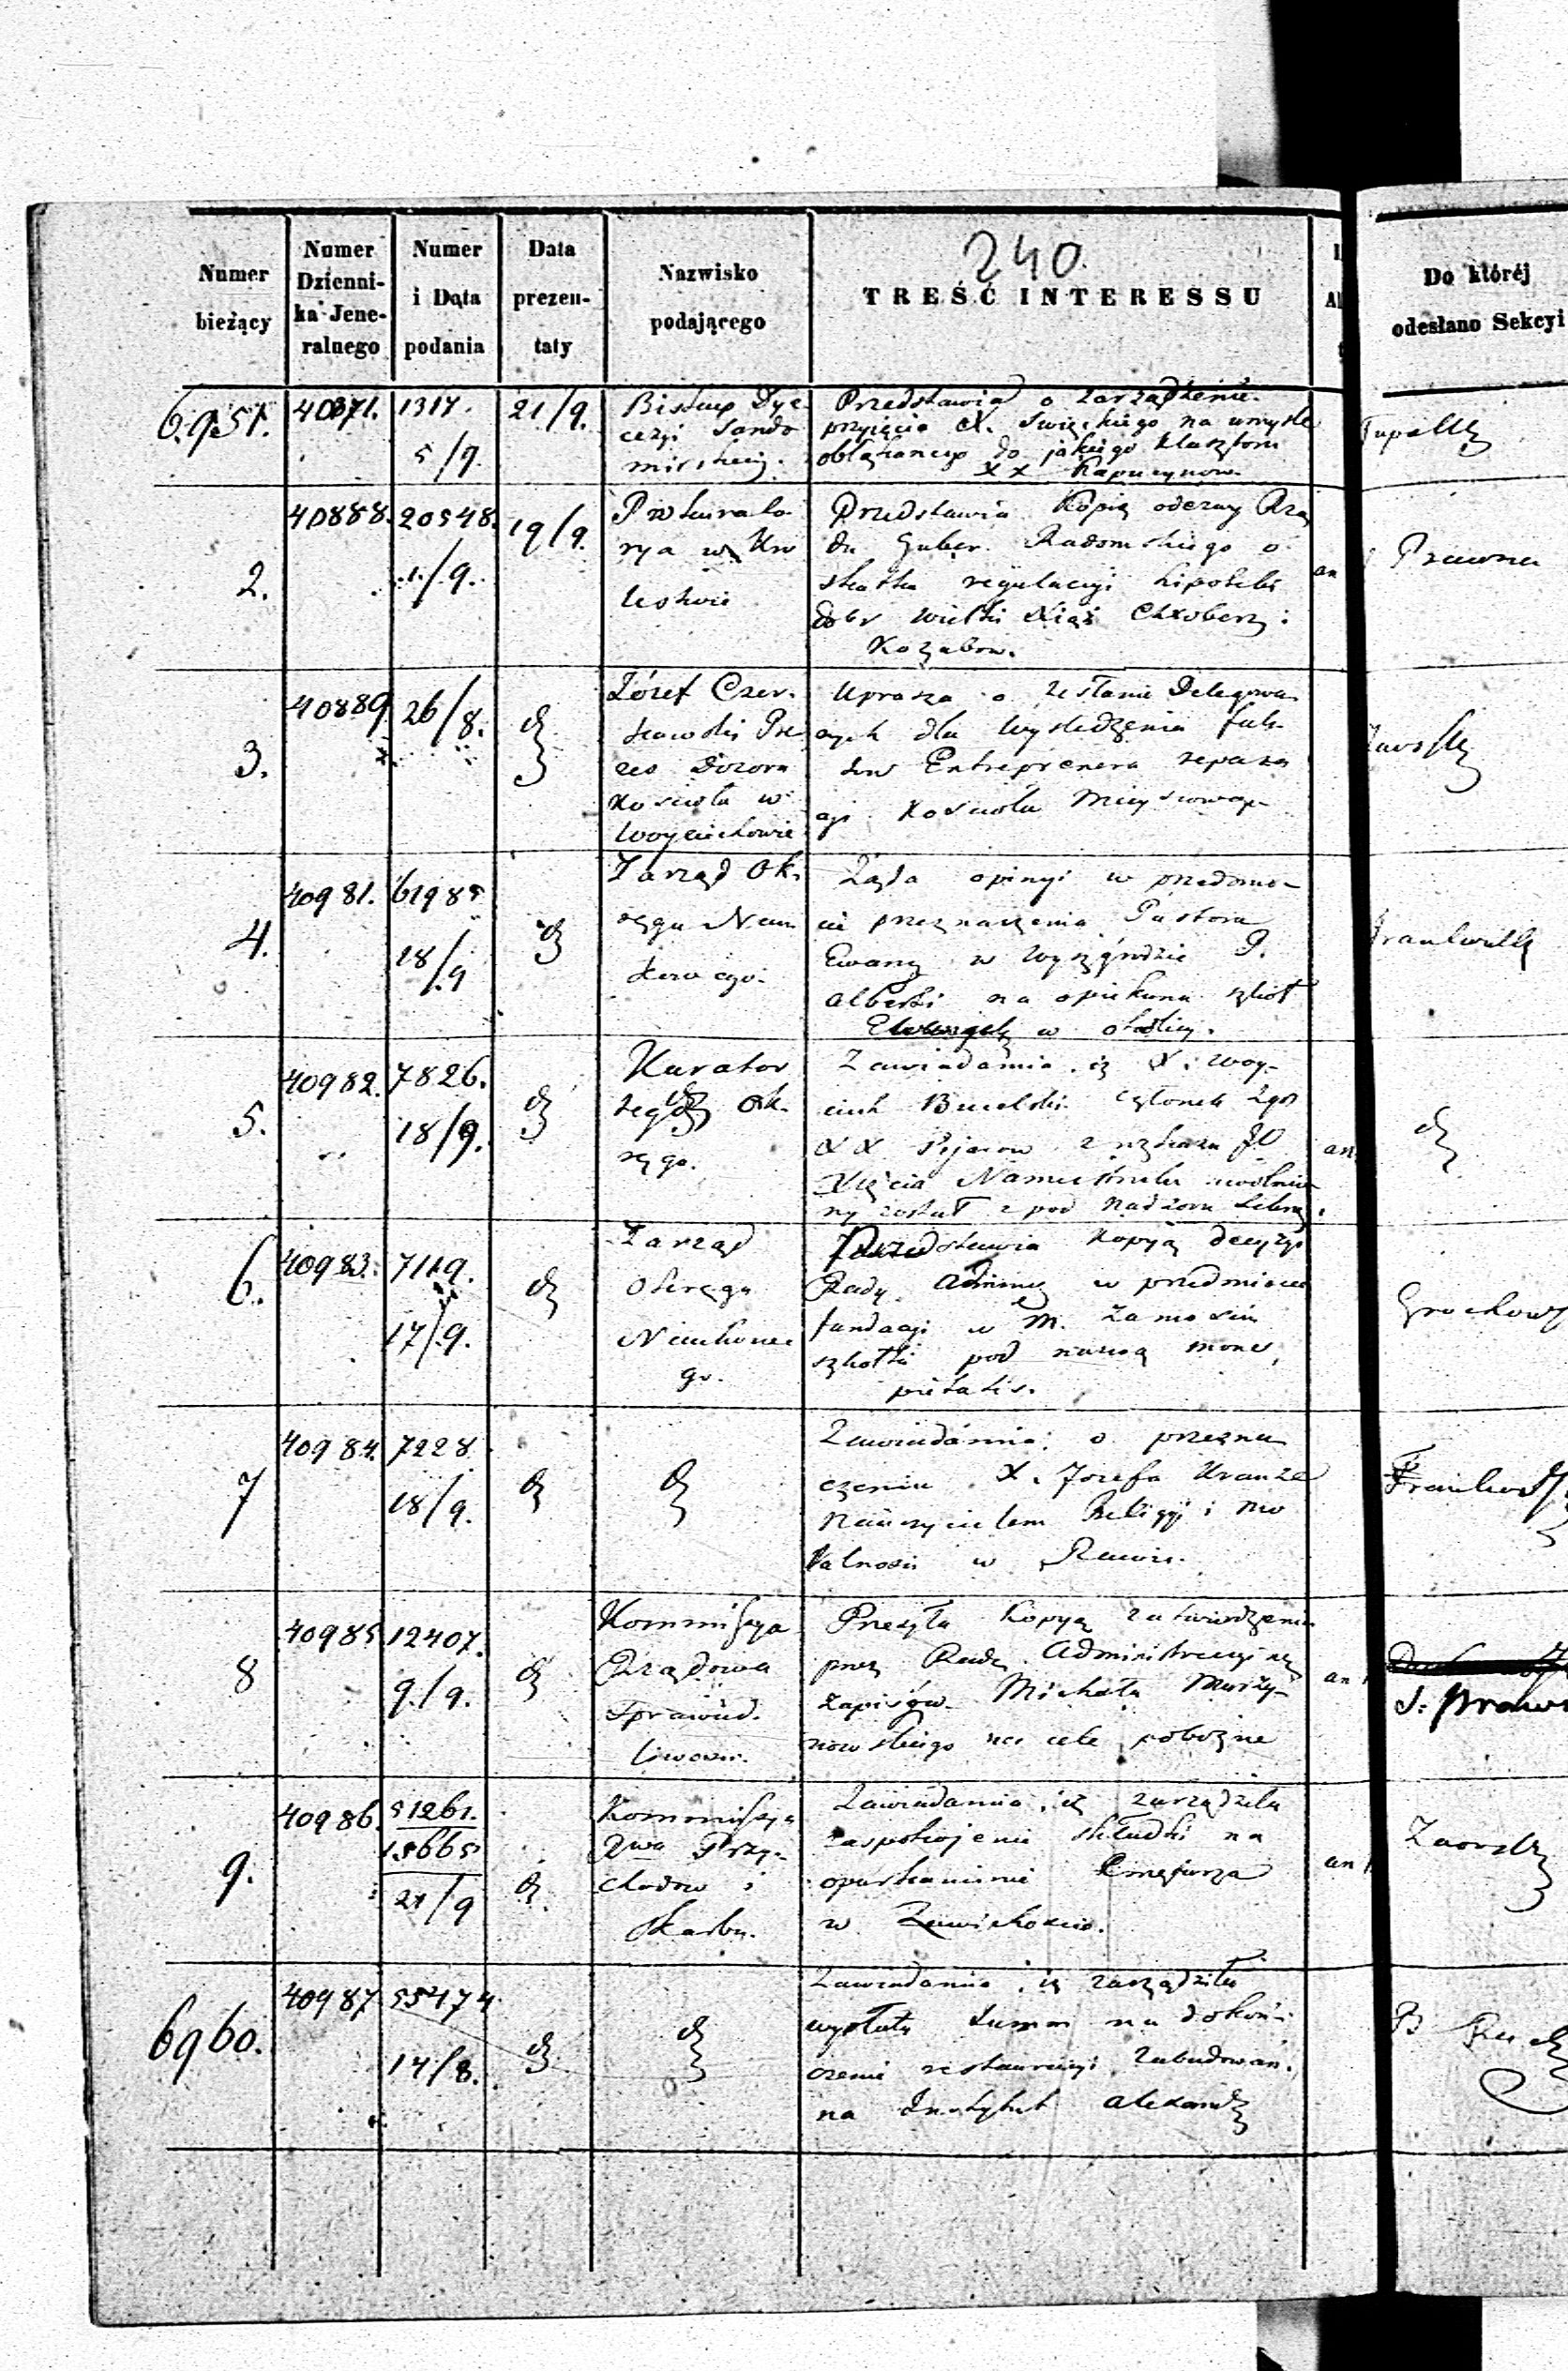 240.
Numer bieżący
Numer Dzienni-ka Jene-ralnego
Numer i Data podania
Data prezen-taty
Nazwisko podającego
TREŚĆ INTERESSU
Do któréj odesłano Sekcyi
6.951. 40871. 1317. 5/9. 21/9.
Biskup Dye-
cezyi Sando
mirskiej.
Przedstawia o zarządzenie
przyjęcia X. Święckiego na umyśle
obłąkanego do jakiego klasztoru
XX Kapucynow.
2. 40888. 20548. 1/9. 19/9.
Prokurato
rya w Kró
lestwie
Przedstawia Kopią odezwy Rzą
du Guber. Radomskiego o
skutku regulacyi hipoteki
dobr wielki Xiąż Chroberz i
Kozubow.
an
Prawna
3. 40889 26/8.
Józef Czer-
Pre
zes Dozoru
Kościoła w
Woyciechowie
Uprasza o zesłanie Delegowa
nych dla wyśledzenia fał-
szow Entreprenera repara
cyi Kościoła Miejscowego
4. 40981. 61985 18/9
Zarząd Ok-
ręgu Nau
kowego.
Żąda opinyi w przedmio-
cie przeznaczenia Pastora
Ewang w Wyszgrodzie P.
Alberti na opiekuna szkół
Ewangely w okolicy.
5. 40982. 7826. 18/9.
Kurator
tegoż Ok-
ręgo.
Zawiadamia iż X. Woy-
ciech Bucelski członek Zgr
XX Pijarow z rozkazu JO
Xięcia Namiestnika uwolnio
ny został z pod nadzoru
an
6. 40983. 7119. 17/9.
Zarząd
Okręgu
Naukowe
go.
Przedstawia kopyą decyzyi
Rady Adminis w przedmiocie
fundacyi w M. Zamościu
szkółki pod nazwą mons
pietatis.
7 40984. 7228 18/9.
Zawiadamia o przezna
czeniu X. Jozefa Kranze
nauczycielem Religyi i mo
ralności w Rawie.
8 40985 12407. 9/9.
Kommissya
Rządowa
Sprawied.
liwości.
Przesyła kopyą zatwierdzenia
przez Radę Administracyjną
zapisów Michała Murzy-
nowskiego na cele pobożne
an
S: Prawn
9. 40986. 51261. 15665 21/9
Kommissya
Rwa Przy-
chodow i
Skarbu.
Zawiadamia, iż zarządziła
zaspokojenie składki na
oparkanienie Cmętarza
w Zawichoście.
an
6960. 40987 55474 14/8.
Zawiadamia, iż zarządziła
wypłatę summ na dokoń-
czenie restauracyi zabudowań
na Instytut Alexand